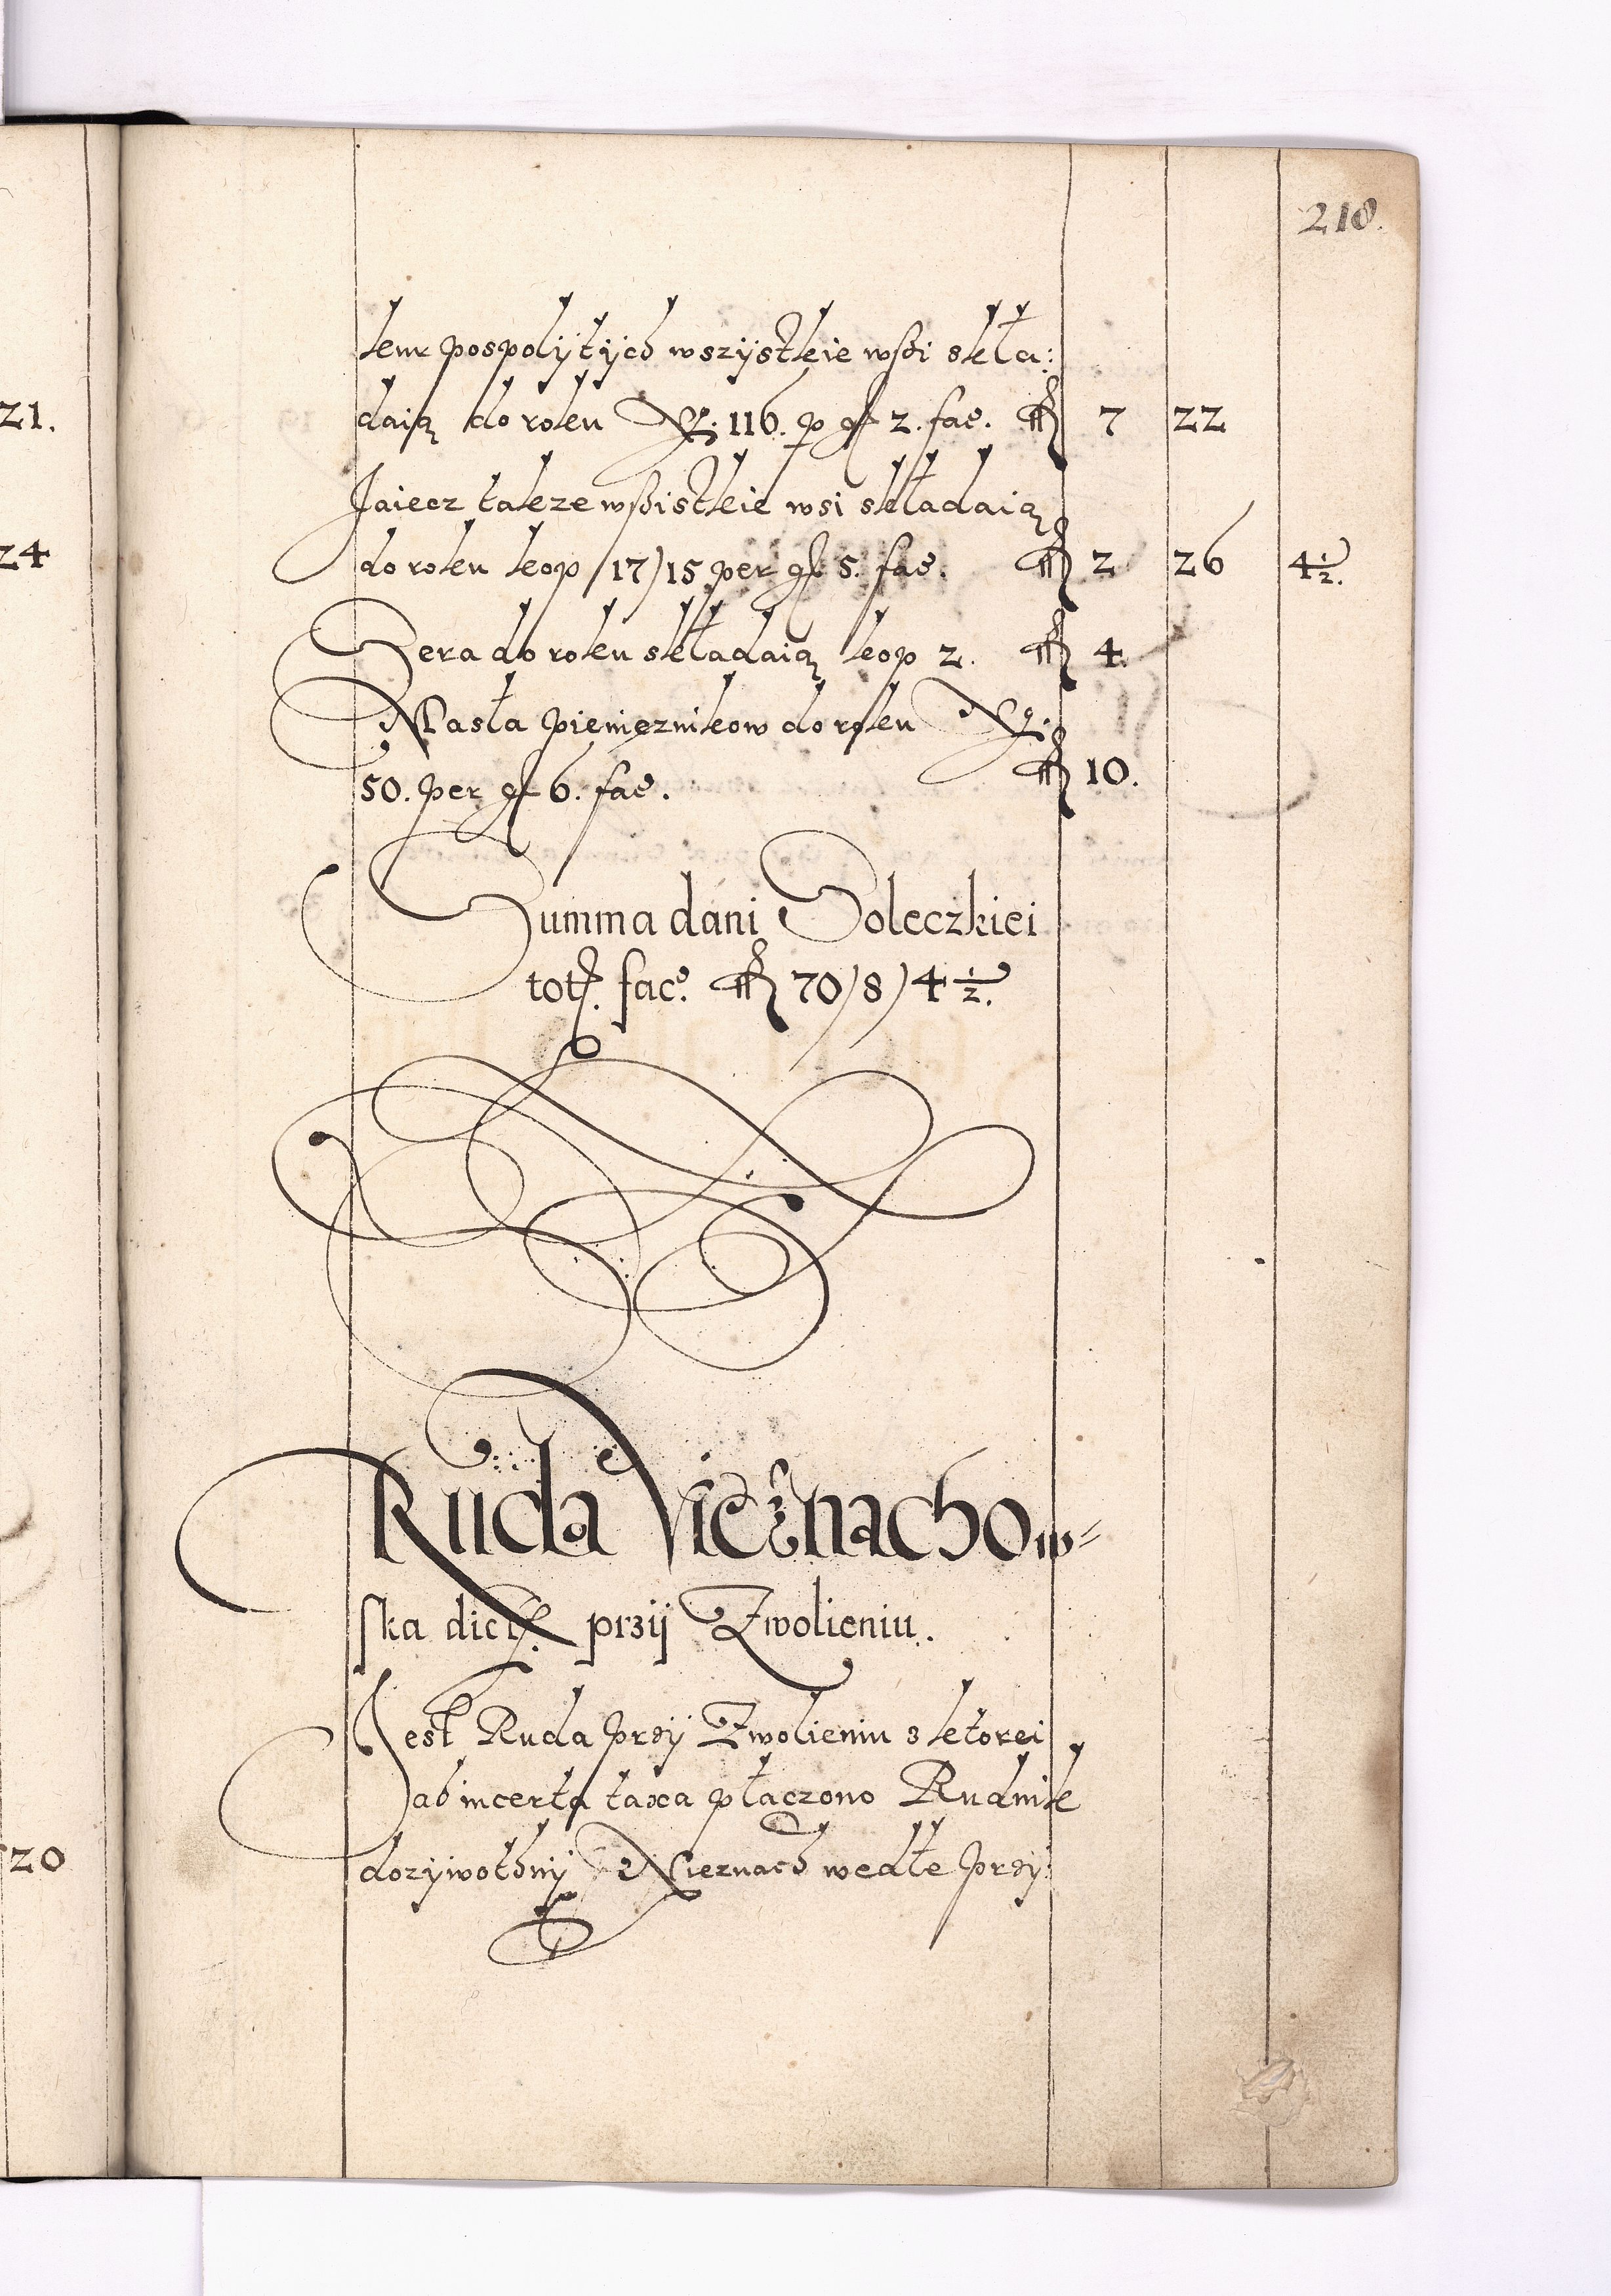 218.
kur pospolÿtÿch wszÿstkie wßi skła:
daią do roku Nr. 116. p gr 2. fac. fl 7 22
Jaiecz takze wßistkie wsi składaią
do roku kop 17) 15 per gr 5. fac. fl 2 26 4½.
Sera do roku składaią kop 2. fl 4.
Masła pienieznikow do roku Nr.
50. per gr 6. fac. fl 10.
Summa dani Soleczkiei
tot. fac. fl 70) 8) 4½.
Ruda Nieznachow=
ska dict. przÿ Zwolieniu.
Jest Ruda przÿ Zwolieniu z ktorei
ab incerta taxa płaczono Rudnik
dozÿwothnÿ Nieznach wedłe przÿ:
21.
24
20